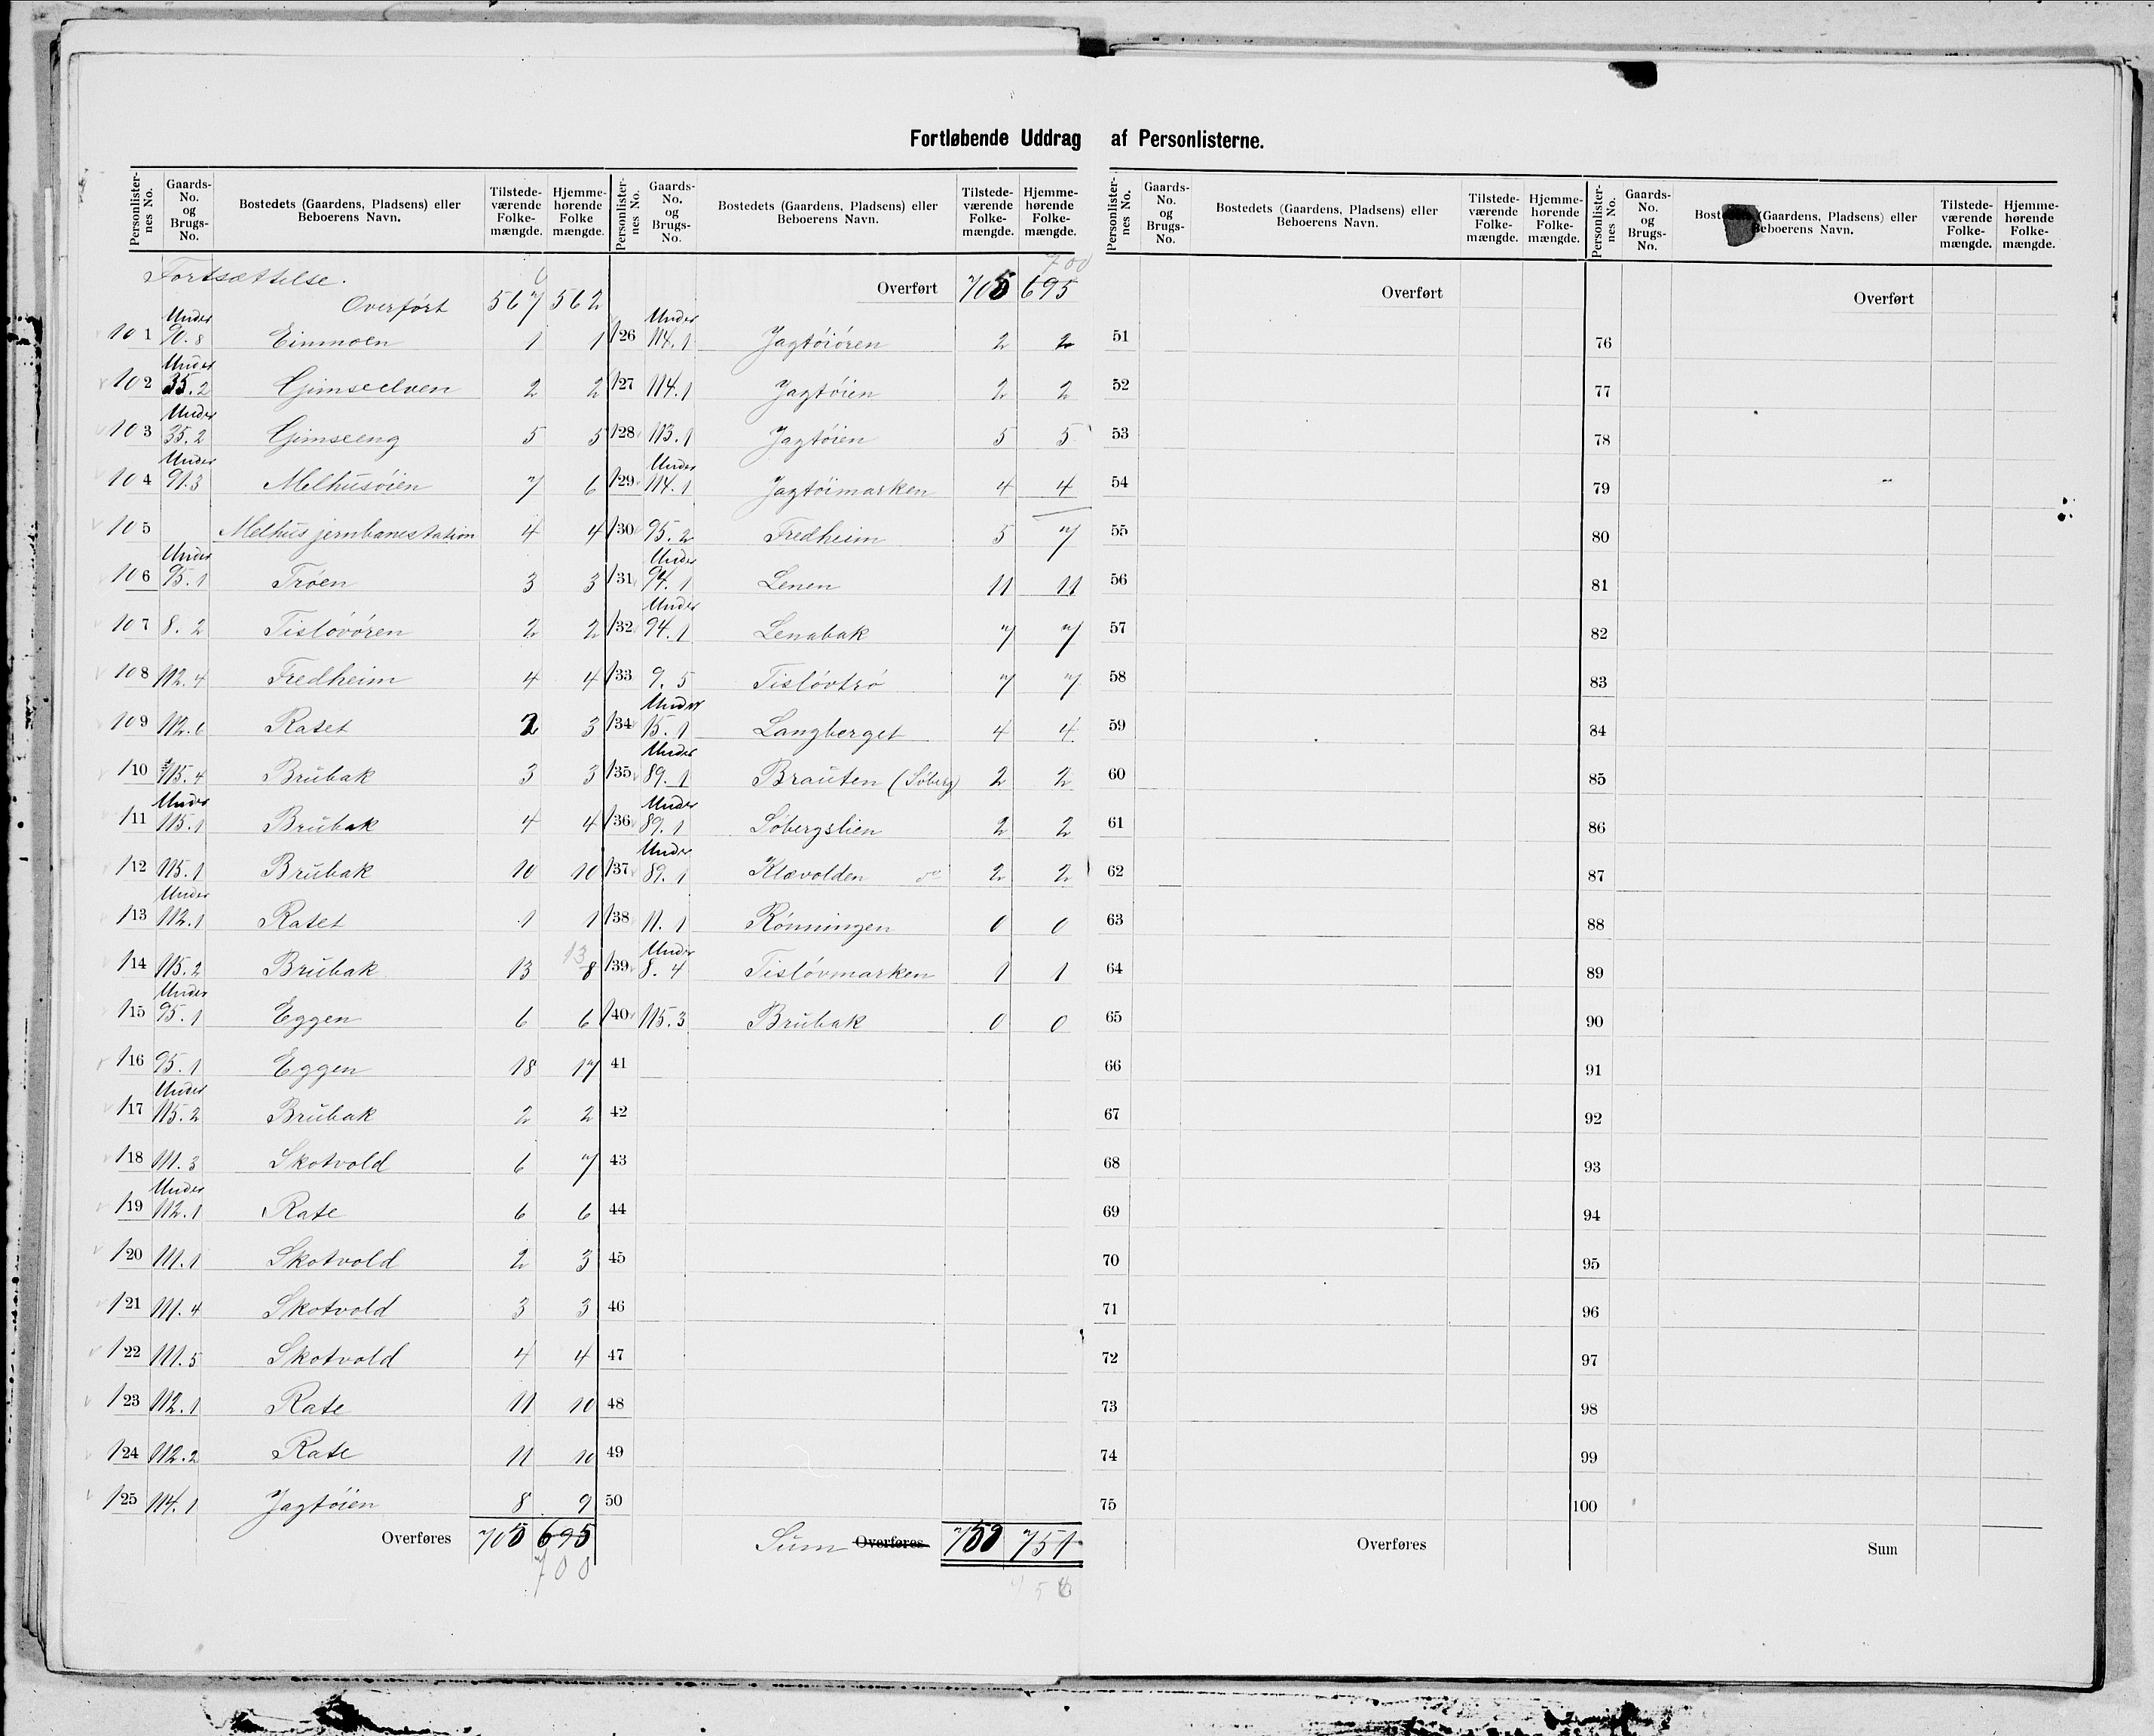 Fortløbende Uddrag af Personlisterne.
Personlister-nes No. Gaards-No. og Brugs-No. Bostedets (Gaardens, Pladsens) eller Beboerens Navn. Tilstede-værende Folke-mængde. Hjemme-hørende Folke mængde.
Fortsættelse.
Overført 567 562
101 Under 90.8 Einmoen 1 1
102 Under 35.2 Gimseelven 2 2
103 Under 35.2 Gimseeng 5 5
104 Under 91.3 Melhusöien 7 6
105 Melhus jernbanestation 4 4
106 Under 95.1 Tröen 3 3
107 8.2 Tislövören 2 2
108 112.4 Fredheim 4 4
109 112.6 Ratet 2 3
110 115.4 Brubak 3 3
111 Under 115.1 Brubak 4 4
112 115.1 Brubak 10 10
113 Under 112.1 Ratet 1 1
114 115.2 Brubak 13 13 8
115 Under 95.1 Eggen 6 6
116 95.1 Eggen 18 17
117 Under 115.2 Brubak 2 2
118 111.3 Skotvold 6 7
119 Under 112.1 Rate 6 6
120 111.1 Skotvold 2 3
121 111.4 Skotvold 3 3
122 111.5 Skotvold 4 4
123 112.1 Rate 11 10
124 112.2 Rate 11 10
125 114.1 Jagtöien 8 9
Overføres 705 695
700
Personlister-nes No. Gaards-No. og Brugs-No. Bostedets (Gaardens, Pladsens) eller Beboerens Navn. Tilstede-værende Folke-mængde. Hjemme-hørende Folke-mængde.
700
Overført 705 695
126 Under 114.1 Jagtöiören 2 2
127 114.1 Jagtöien 2 2
128 113.1 Jagtöien 5 5
129 Under 114.1 Jagtöimarken 4 4
130 95.2 Fredheim 5 7
131 Under 94.1 Lenen 11 11
132 Under 94.1 Lenabak 7 7
133 9.5 Tislövtrö 7 7
134 Under 15.1 Langberget 4 4
135 Under 89.1 Brauten (Söberg) 2 2
136 Under 89.1 Söbergslien 2 2
137 Under 89.1 Klævolden do 2 2
138 11.1 Rönningen 0 0
139 Under 8.4 Tislövmarken 1 1
140 115.3 Brubak 0 0
41
42
43
44
45
46
47
48
49
50
Sum Overføres 759 751
756
Personlister-nes No. Gaards-No. og Brugs-No. Bostedets (Gaardens, Pladsens) eller Beboerens Navn. Tilstede-værende Folke-mængde. Hjemme-hørende Folke-mængde.
Overført
51
52
53
54
55
56
57
58
59
60
61
62
63
64
65
66
67
68
69
70
71
72
73
74
75
Overføres
Personlister-nes No. Gaards-No. og Brugs-No. Bostedets (Gaardens, Pladsens) eller Beboerens Navn. Tilstede-værende Folke-mængde. Hjemme-hørende Folke-mængde.
Overført
76
77
78
79
80
81
82
83
84
85
86
87
88
89
90
91
92
93
94
95
96
97
98
99
100
Sum